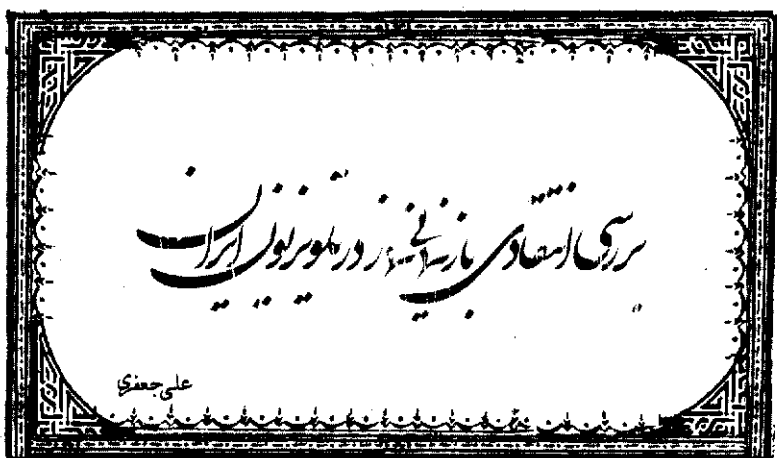 بررسی انتقادی بازنمایی در تلویزیون ایران
علی جعفری